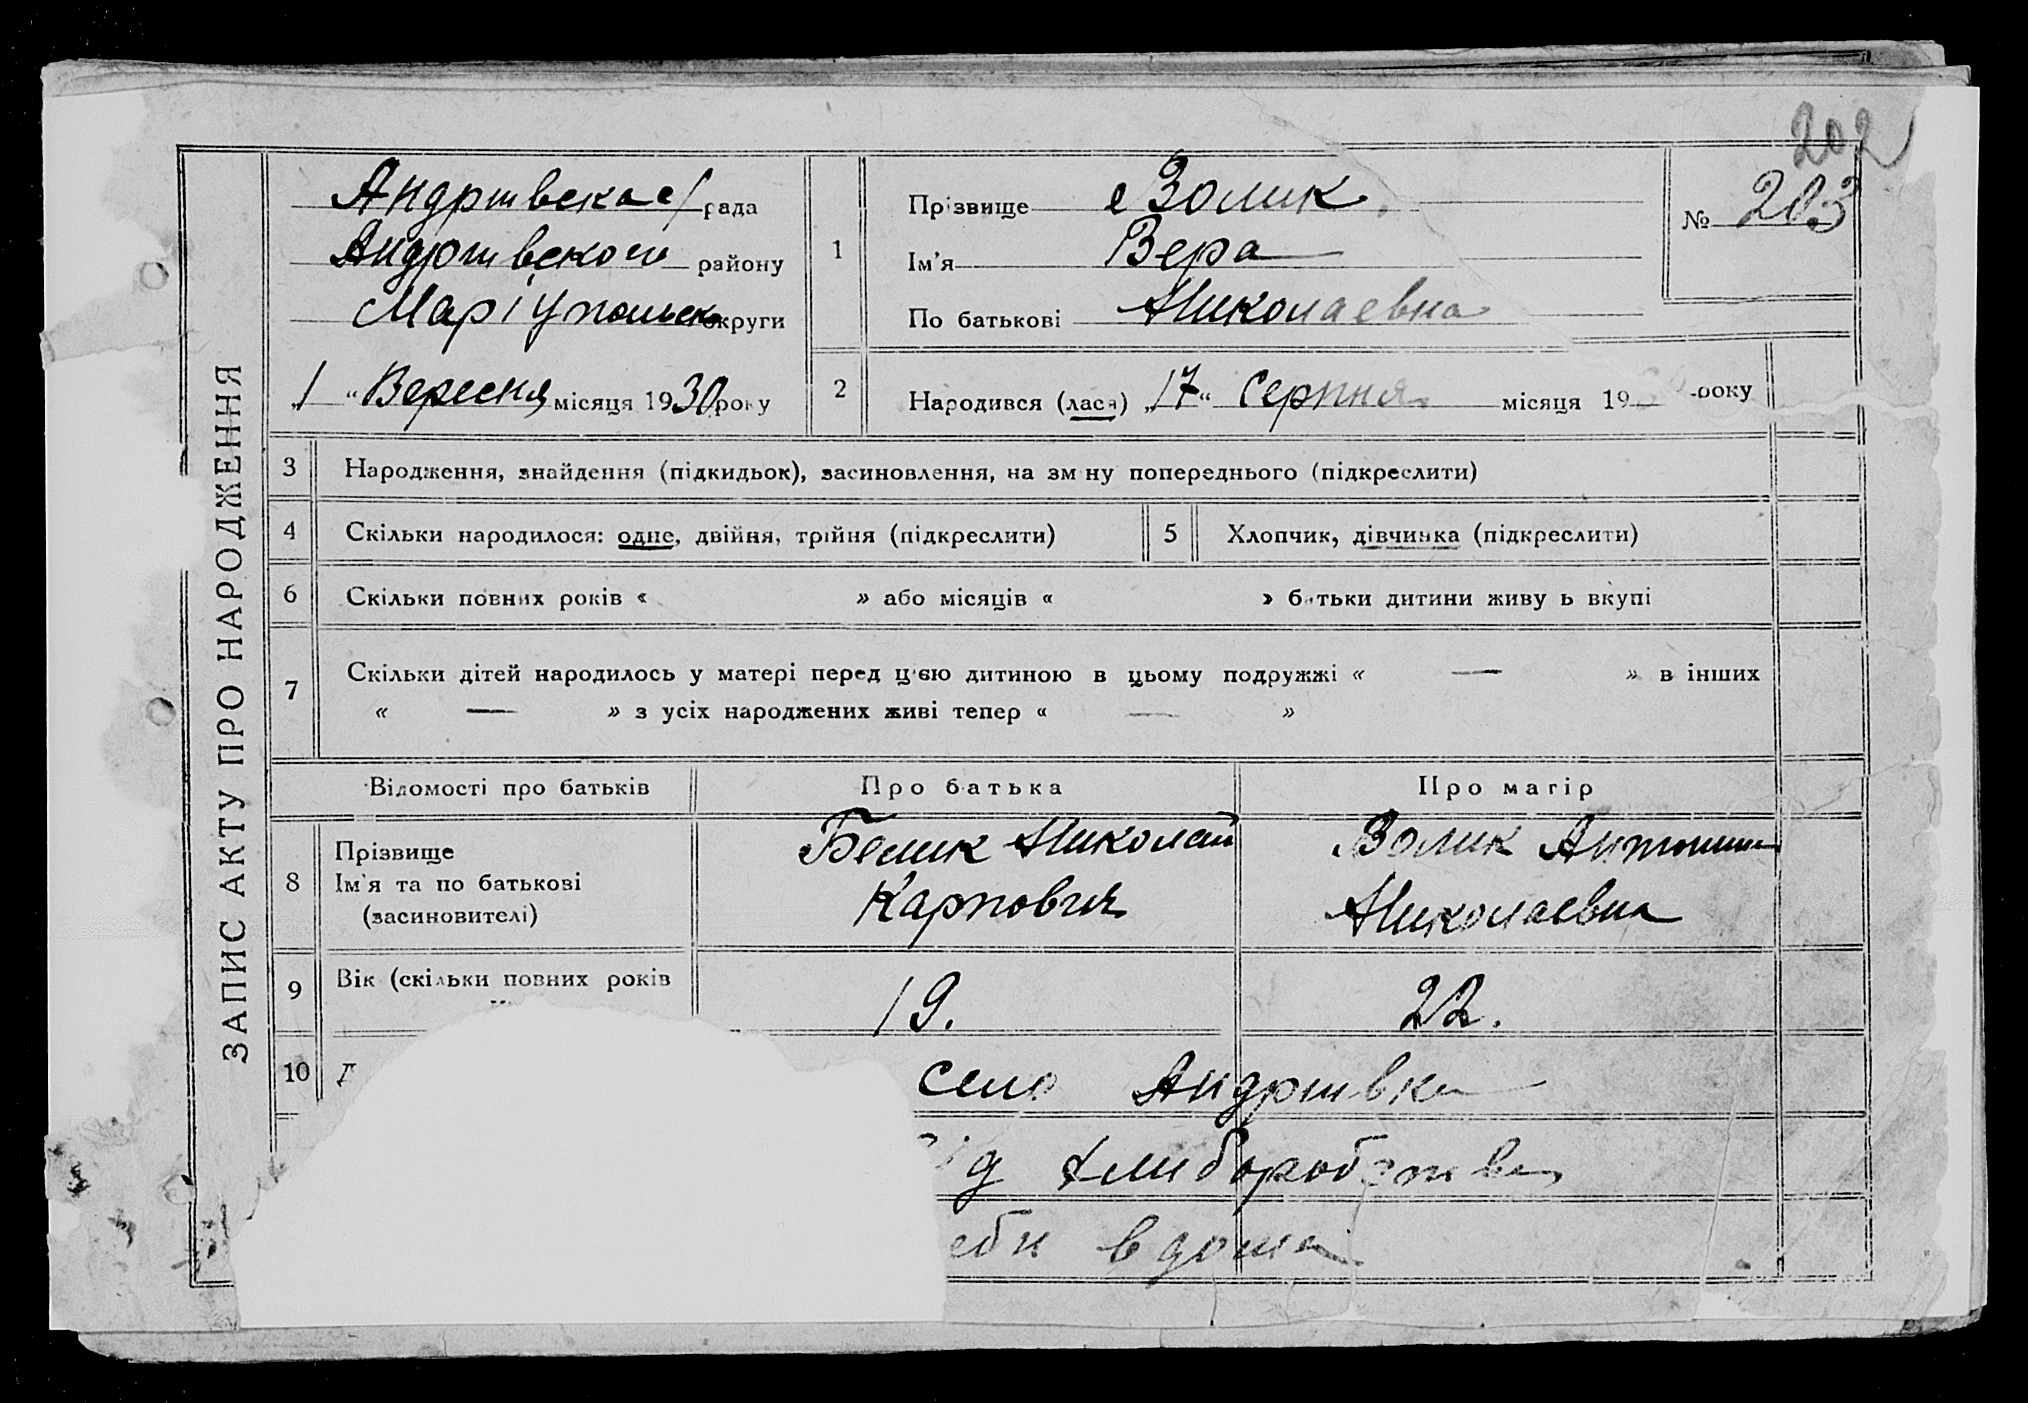 202
ЗАПИС АКТУ ПРО НАРОДЖЕННЯ
Андріївська с/рада
Андріївского району
Маріупольск округи
„1“ Вересня місяця 1930 року
1
Прізвище Золик
Ім'я Вера
По батькові Николаевна
№ 203
2
Народився (лася) „17“ Серпня місяця 193 року
3 Народження, знайдення (підкидьок), засиновлення, на зм ну попереднього (підкреслити)
4 Скільки народилося: одне, двійня, трійня (підкреслити) 5 Хлопчик, дівчинка (підкреслити)
6 Скільки повних років « » або місяців « » батьки дитини живу ь вкупі
7 Скільки дітей народилось у матері перед цією дитиною в цьому подружжі « — » в інших
« — » з усіх народжених живі тепер « — »
Відомості про батьків Про батька Про матір
8 Прізвище
Ім'я та по батькові
(засиновителі)
Белик Николай
Карпович
Золик Антонина
Николаевна
9 Вік (скільки повних років 19. 22.
10 село Андріївка
хлиборобства
вдома